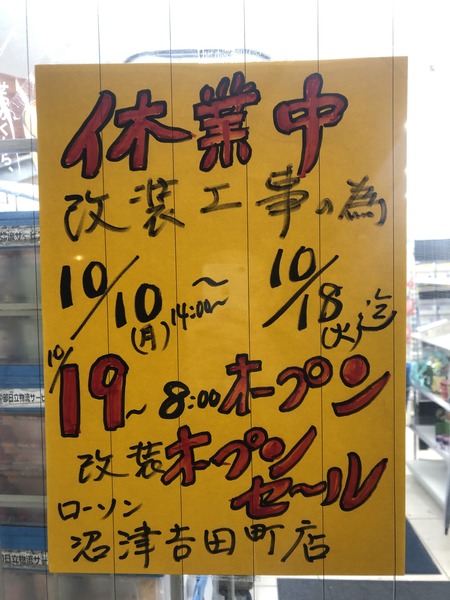 休業中
改装工事の為
10/10(月)14:00~ ~ 10/18(火)迄
10/19~ 8:00オープン
改装オープンセール
ローソン
沼津吉田町店
日立物流サービ